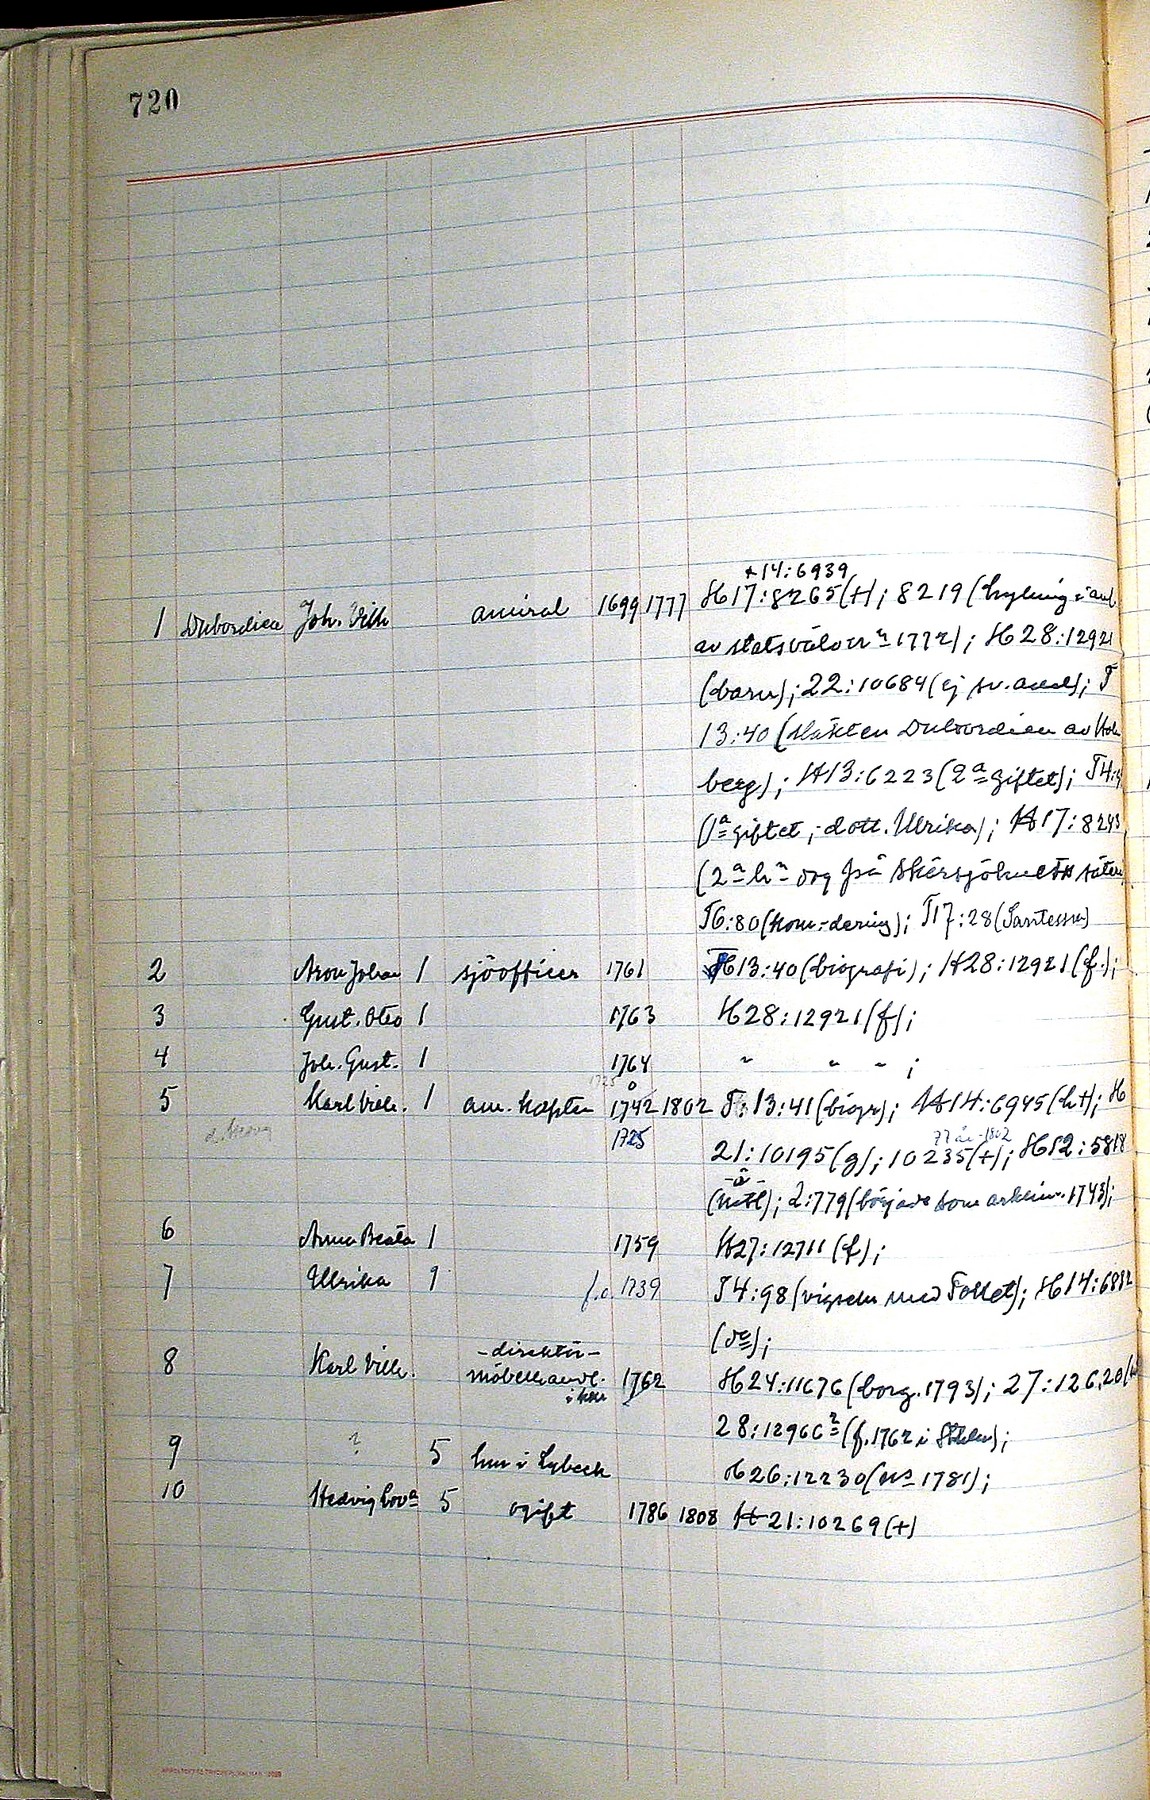 720
+14:6939
1 Dubordieu Joh. Vilh amiral 1699 1777 H17:8265(+); 8219 (hylning i anl
av statsvälvn 1772); H28:12921
(barn); 22:10684 (ej sv. adel); T
13:40 (släkten Dubordieu av Hol
berg); H13:6223 (2a giftet); T4:9
(1a giftet, dott. Ulrika); H17:8243
(2a hn dog på Skärsjöhults säteri
T6:80 (kom-dering); T17:28 (Santesson)
2 Aron Johan 1 sjöofficer 1761 H13:40 (biografi); H28:12921 (f.);
3 Gust. Otto 1 1763 H28:12921 (f);
4 Joh. Gust. 1 1764 " " " ;
5 Karl Vilh. 1 am. kapten 1742 1802 T:13:41 (biogr); H14:6945 (h+); H
1725 21:10195 (g); 10235 (+); H12:5818
77 år -1802
2:779 (började som arklim. 1743);
6 Anna Beata 1 1759 H27:12711 (f);
7 Ulrika 1 f.o. 1739 T4:98 (vigseln med Follet); H14:6812
(do);
8 Karl Vilh. -direktör-
möbelhandl. 1762 H24:11676 (borg. 1793); 27:12620
i Khn
28:12966 (f. 1762 i Sthlm);
9 ? 5 hm i Lybeck H26:12230 (ns 1781);
10 Hedvig Lova 5 ogift 1786 1808 H21:10269 (+)